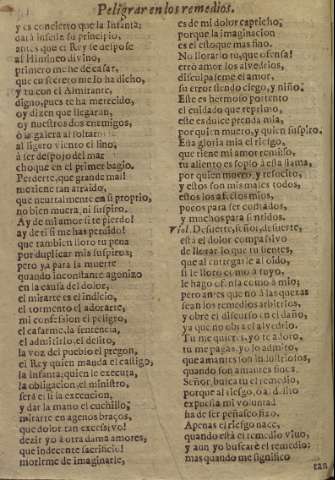 Peligrar en los remedios.
y es concierto que la Infanta;
antes que el Rey se despose
al Himineo divino,
primero me he de casar,
que en secreto me lo ha dicho,
y tu con el Almirante,
digno, pues te ha merecido,
oy dizen que llegaran,
oy nuestros dos enemigos,
o la galera al soltar
al ligero viento el lino,
à ser despojo del mar
choque en el primer bagio.
Perderte, que grande mal!
morirme tan atraido,
que neutralmente en si proprio,
no bien muera, ni suspiro.
Ay de mi amor si te pierdo!
ay de ti si me has perdido!
que tambien lloro tu pena
por duplicar mis suspiros;
pero ya para la muerte
quando inconstante agonizo
en la causa del dolor,
el mirarte es el indicio,
el tormento el adorarte,
mi confession el peligro,
el casarme, la sentencia,
el admitirlo, el delito,
la voz del pueblo el pregon,
el Rey quien manda el castigo,
la Infanta, quien le executa,
la obligacion, el ministro,
será el si la execucion,
y dar la mano el cuchillo;
mirarte en agenos braços,
que dolor tan excessivo!
dezir yo à otra dama amores,
que indecente sacrificio!
morirme de imaginarle,
es de mi dolor capricho;
porque la imaginacion
es el estoque mas fino.
No llorarlo tu, que ofensa!
erró amor los alvedrios,
disculpáeme el amor,
su error siendo ciego, y niño.
Este es hermoso portento
el cuidado que reprimo,
este es dulce prenda mia,
por quien muero, y quien suspiro.
Esta gloria mia el riesgo,
que tiene mi amor remisso,
tu aliento es soplo à esta llama,
por quien muero, y resucito,
y estos son mis males todos,
estos los afectos mios,
pocos para ser contados,
y muchos para sentidos.
Viol. De suerte, señor, de suerte,
está el dolor compassivo
de llorar lo que tu sientes,
que al entregarle al oído,
si le lloro como à tuyo,
le hago ofensa como à mio;
pero antes que no à las quexas
sean los remedios arbitrios,
y obre el discurso en el daño,
ya que no obra el alvedrio.
Tu me quieres, yo te adoro,
tu me pagas, yo lo admito,
que amantes son industriosos,
quando son amantes finos.
Señor, busca tu el remedio,
porque al riesgo, o al destino
expuesta mi voluntad
ha de ser peñasco fixo.
Apenas el riesgo nace,
quando está el remedio vivo,
y aun yo buscaré el remedio:
mas quando me significo
tan